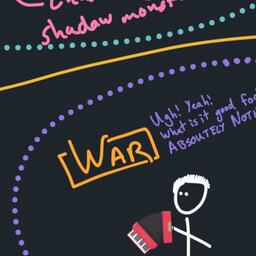 shadaw monst
WAR
Ugh! Yeah!
what is it good for
ABSOUTELY NOTH